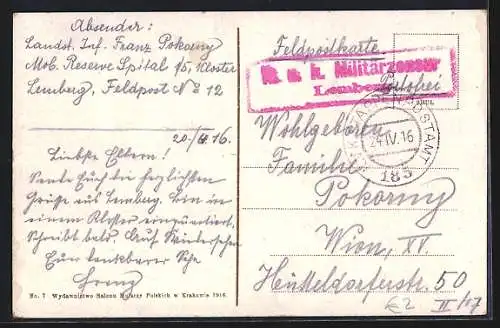 Absender:
Landst. Inf. Franz Pokorny
Mob. Reserve Spital 1/5, Kloster
Lemberg, Feldpost No 12
20/4.16.
Liebste Eltern!
Sende Euch die herzlichsten
Grüße aus Lemberg. Bin in
einem Kloster einquartiert,
Schreibt bald. Auf Wiedersehen
Euer dankbarer Sohn
Franz
No. 7 Wydawnictwo Salonu Malarzy Polskich w Krakowie 1916.
Feldpostkarte
K. u. k. Militärzensur
Lemberg
Portofrei
24 IV. 16
185
Wohlgeboren
Familie
Pokorny
Wien, XV.
Hütteldorferstr. 50
€2
II/17